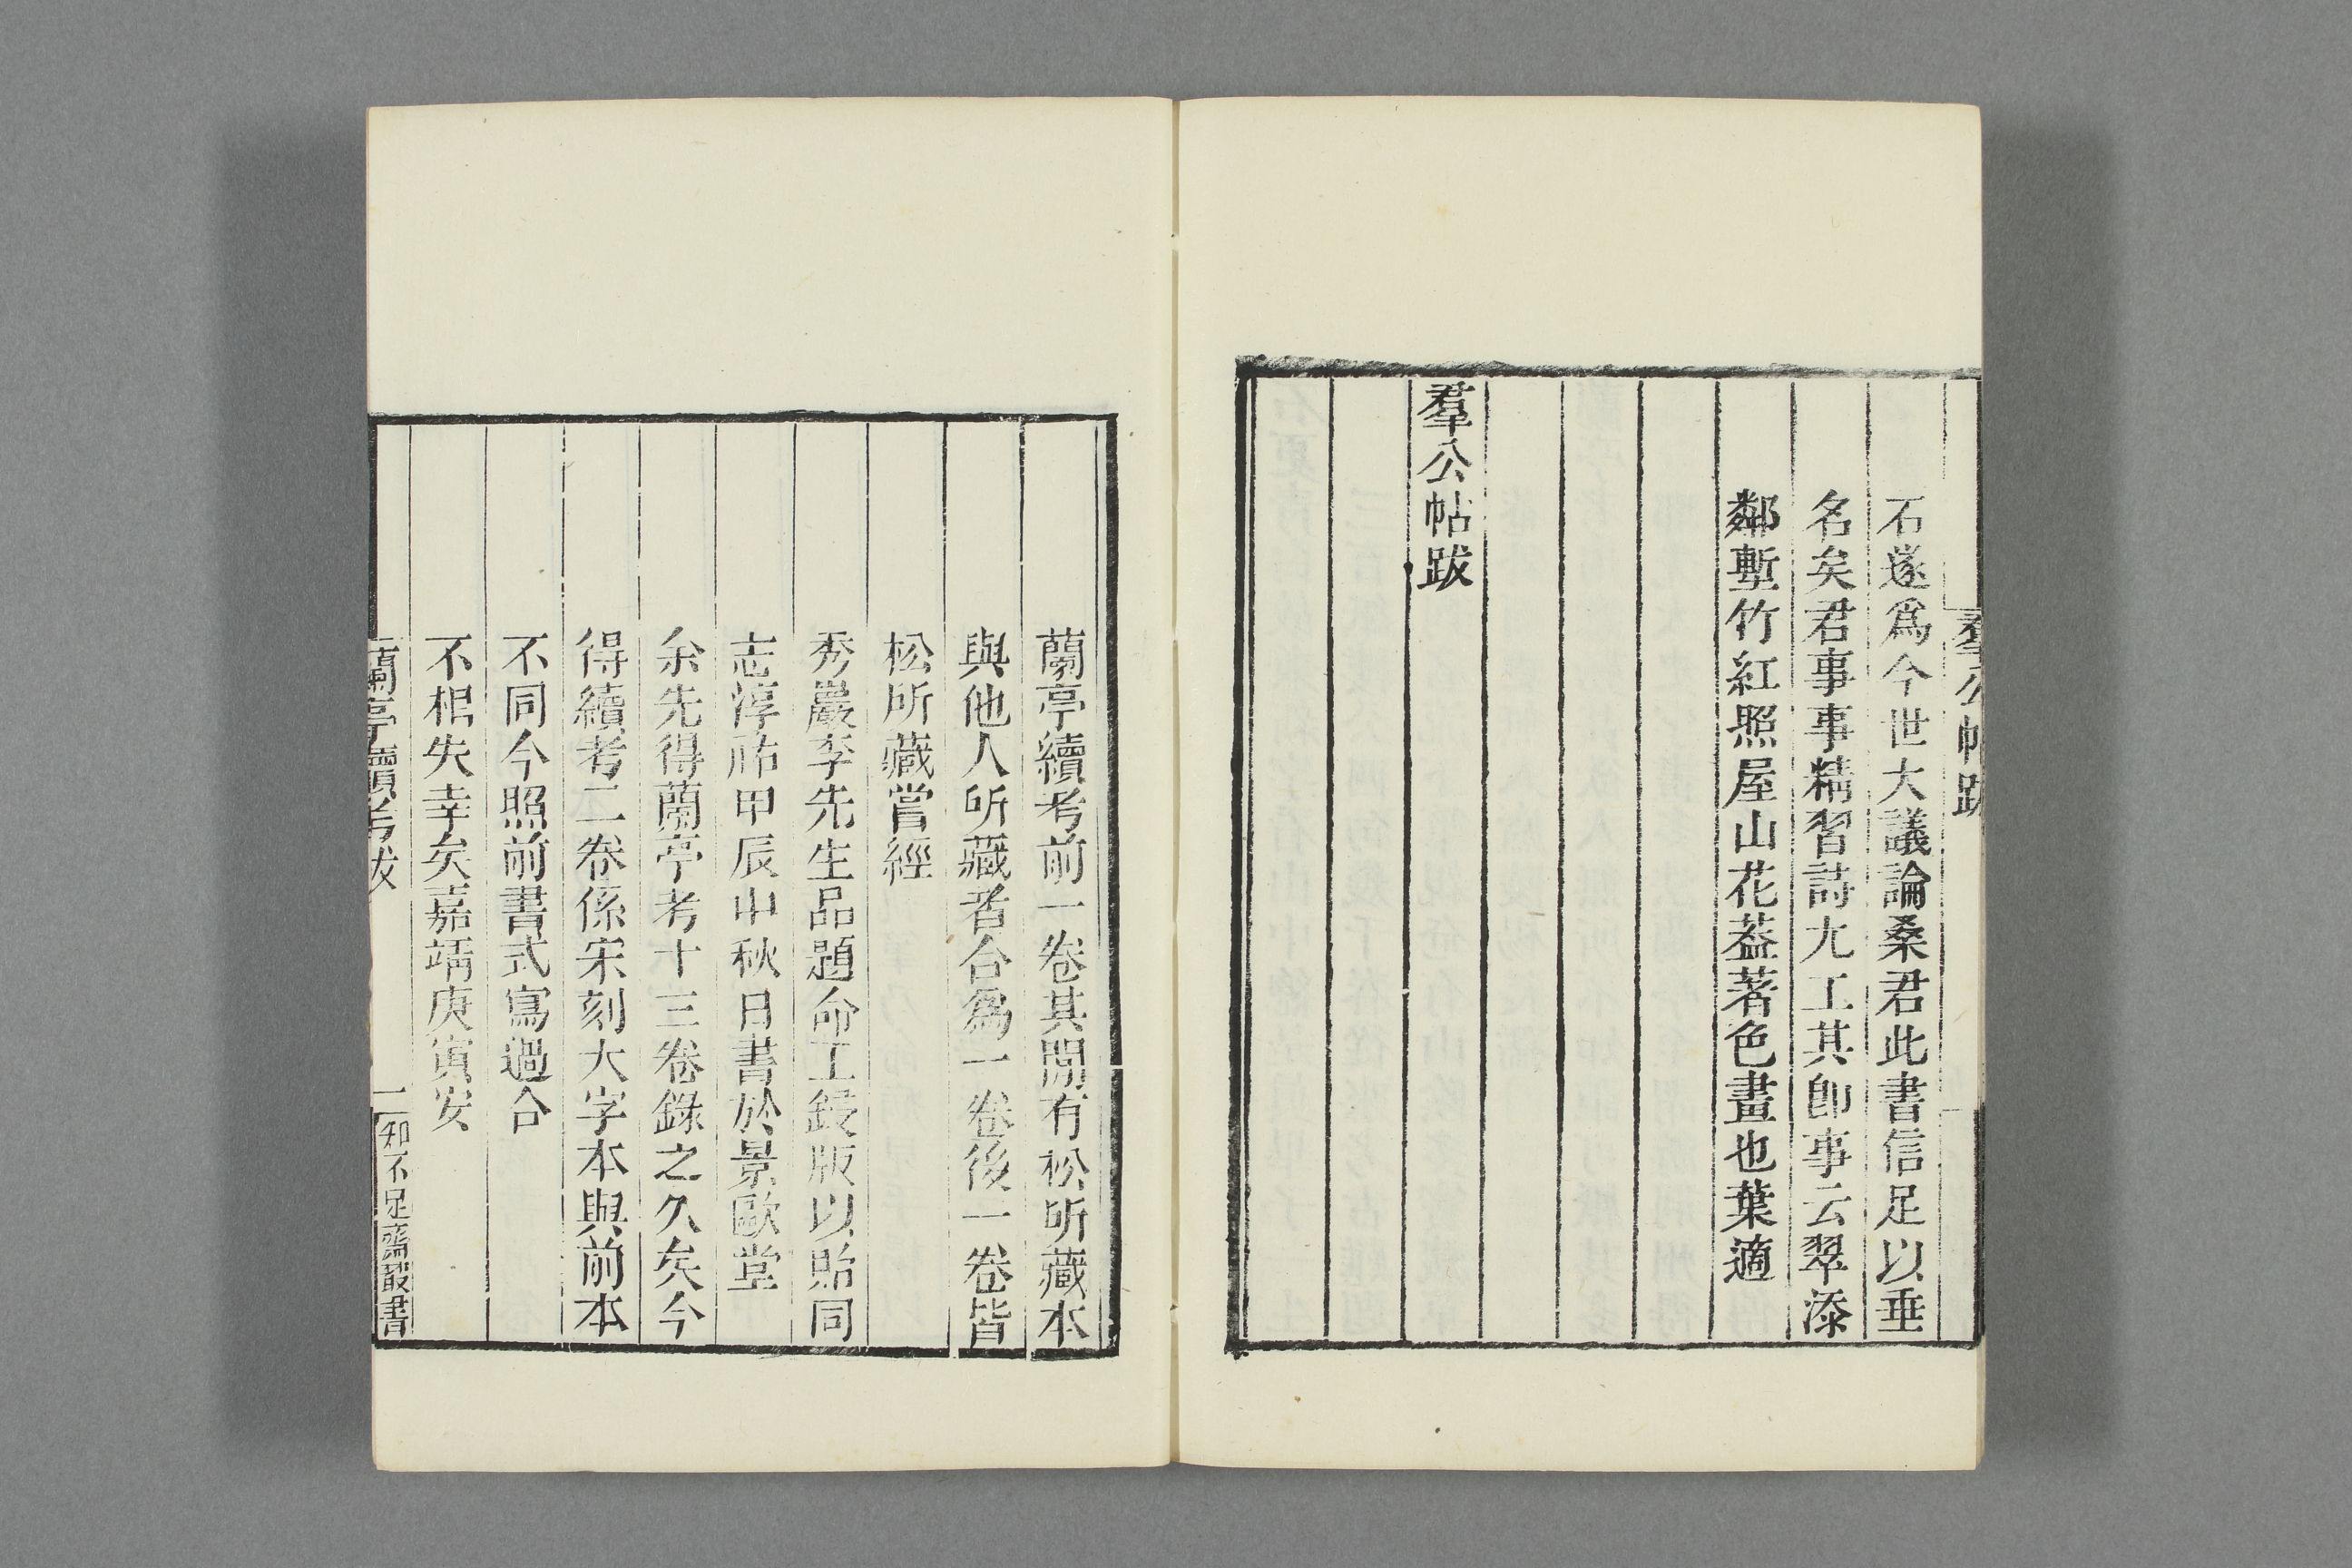 羣公帖跋
石遂爲今世大議論桑君此書信足以垂
名矣君事事精習詩尤工其卽事云翠添
鄰塹竹紅照屋山花葢著色畫也葉適
羣公帖跋
蘭亭續考前一卷其閒有松所藏本
與他人所藏者合爲一卷後一卷皆
松所藏嘗經
秀巖李先生品題命工鋟版以貽同
志淳祐甲辰中秋日書於景歐堂
余先得蘭亭考十三卷錄之久矣今
得續考二卷係宋刻大字本與前本
不同今照前書式寫過合
不相失幸矣嘉靖庚寅安
蘭亭續考跋
一
知不足齋叢書